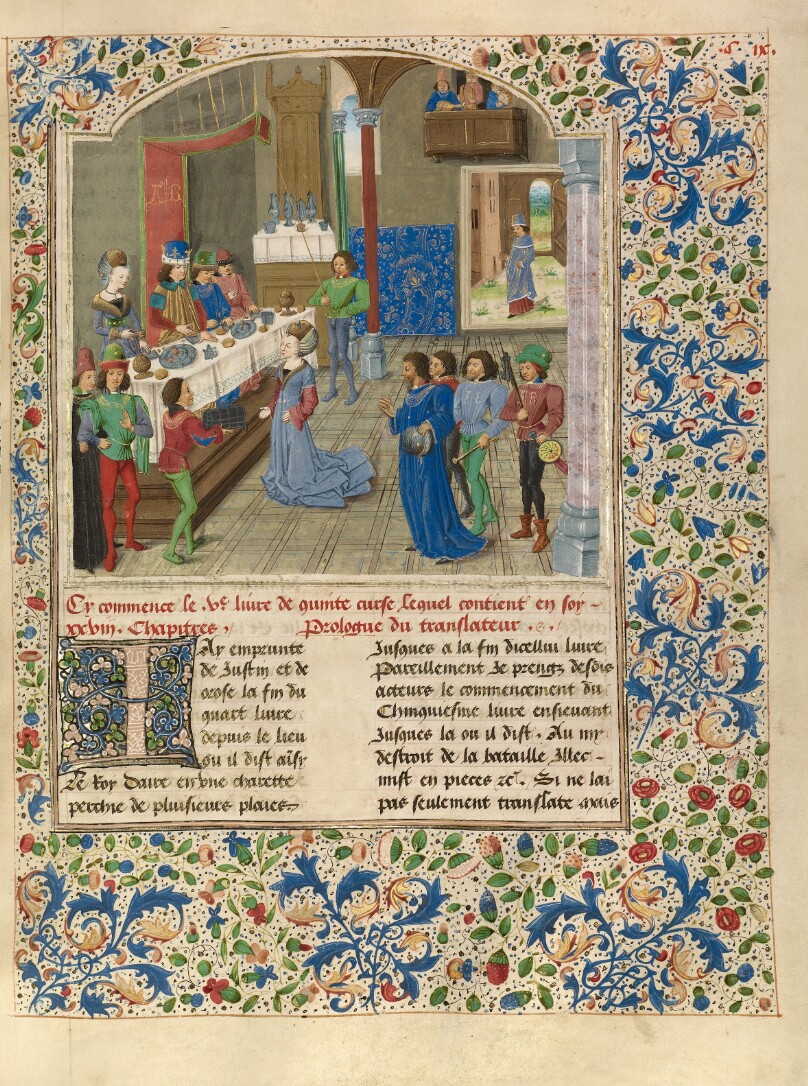 Cy commence le .Ve. livre de quinte curse lequel contient en soy
xxviii. Chapitres, Prologue du translateur
Iay emprunte
de Justin et de
orose la fin du
quart livre
depuis le lieu
ou il dist aīsy
Le Roy Daire en une charette
perchie de pluisieurs plaies
Jusques a la fin dicellui livre
Pareillement Je prengz desdis
acteurs le commencement du
Chinquiesme livre ensievant
Jusques la ou il dist. Au my
destroit de la bataille Illec
mist en pieces zc. Si ne lai
pas seulement translate mais